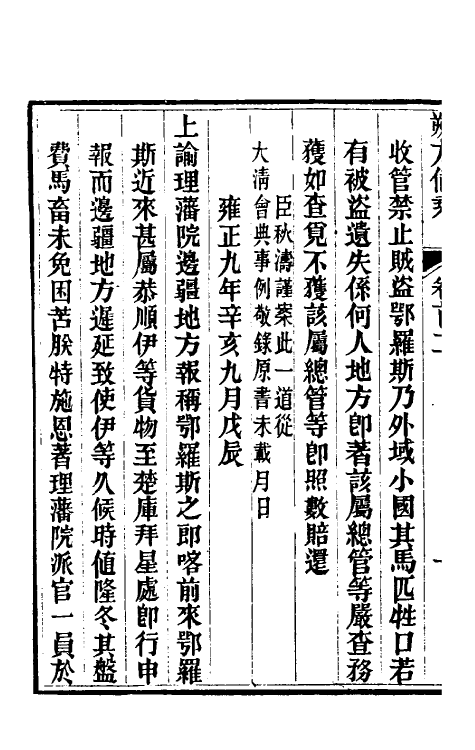 朔方備乘
卷百二
收管禁止賊盜鄂羅斯乃外域小國其馬匹牲口若
有被盜遺失係何人地方卽著該屬總管等嚴查務
獲如查覓不獲該屬總管等卽照數賠還
臣秋濤謹案此一道從
大淸會典事例敬錄原書未載月日
雍正九年辛亥九月戊辰
上諭理藩院邊疆地方報稱鄂羅斯之卽喀前來鄂羅
斯近來甚屬恭順伊等貨物至楚庫拜星處卽行申
報而邊疆地方遲延致使伊等久候時値隆冬其盤
費馬畜未免困苦朕特施恩著理藩院派官一員於